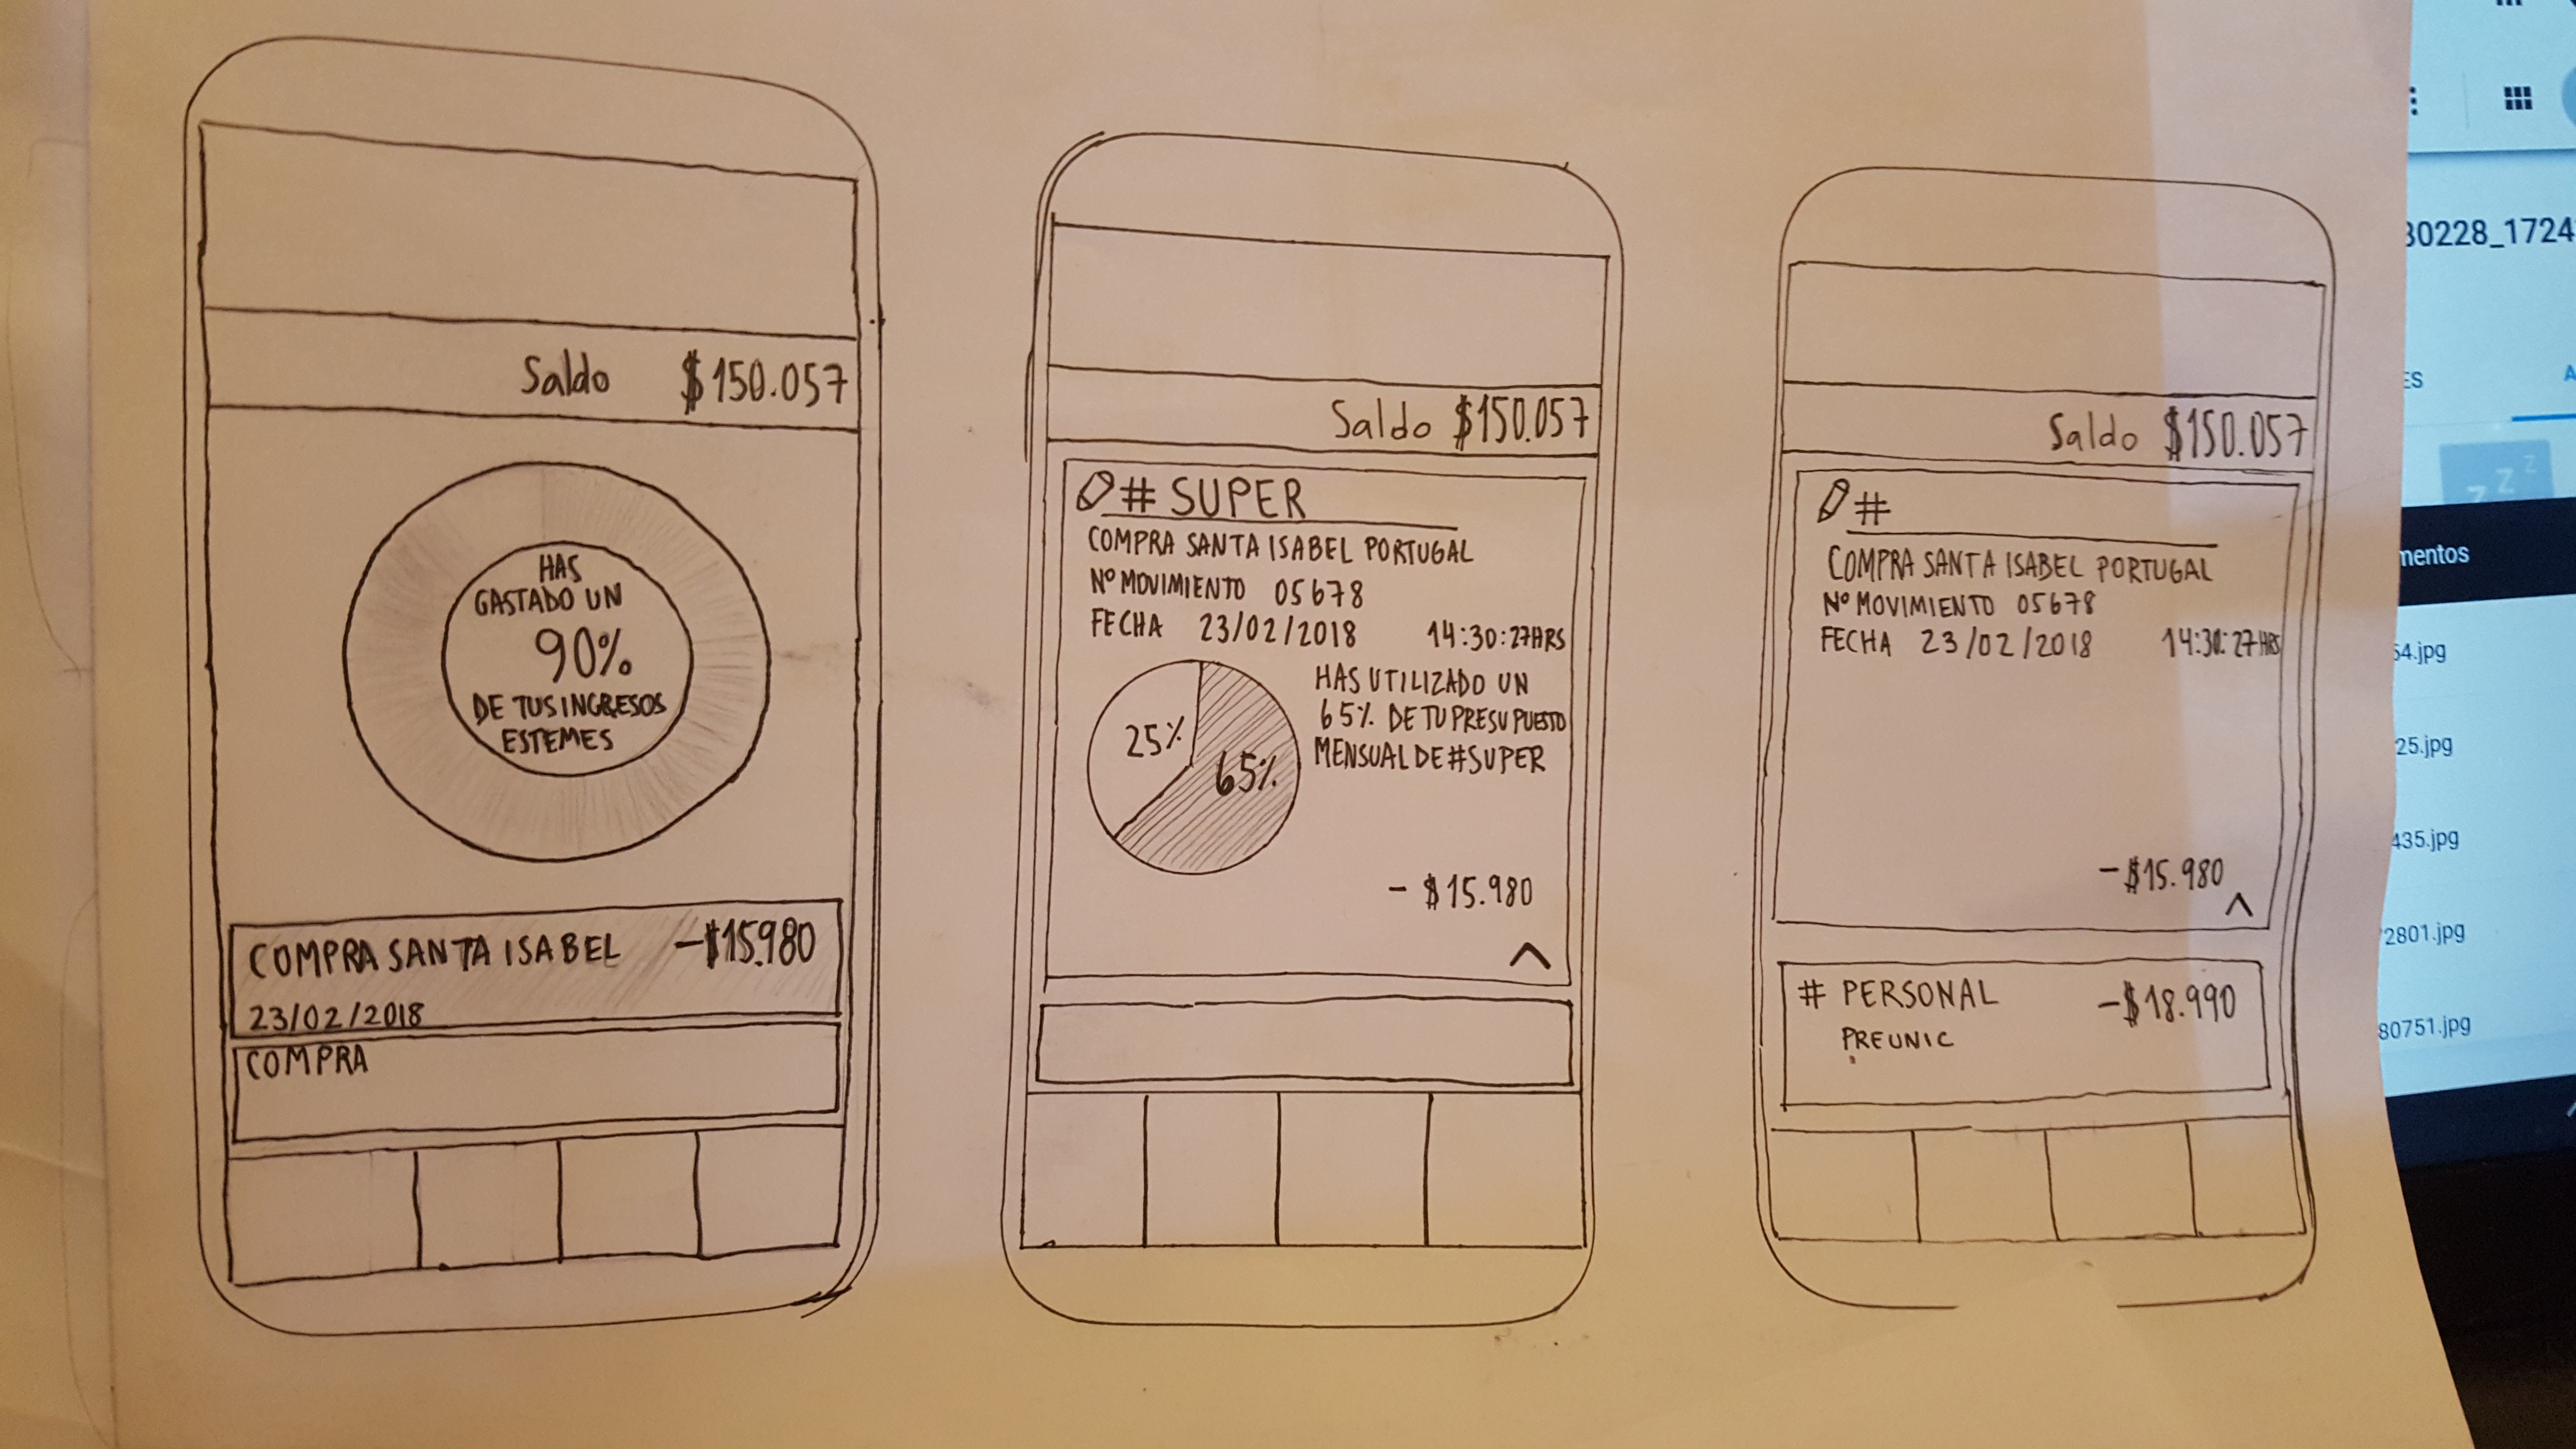 Saldo $150.057
HAS
GASTADO UN
90%
DE TUS INGRESOS
ESTE MES
COMPRA SANTA ISABEL -$15.980
23/02/2018
COMPRA
Saldo $150.057
# SUPER
COMPRA SANTA ISABEL PORTUGAL
Nº MOVIMIENTO 05678
FECHA 23/02/2018 14:30:27HRS
25%
65%
HAS UTILIZADO UN
65% DE TU PRESUPUESTO
MENSUAL DE #SUPER
- $15.980
Saldo $150.057
#
COMPRA SANTA ISABEL PORTUGAL
Nº MOVIMIENTO 05678
FECHA 23/02/2018 14:30:27HRS
-$15.980
# PERSONAL -$18.990
PREUNIC
30228_1724
ES
A
z z z
mentos
64.jpg
25.jpg
435.jpg
2801.jpg
80751.jpg